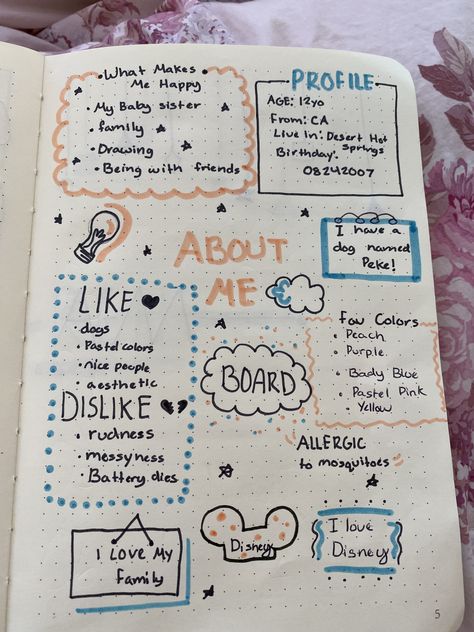 What Makes
Me Happy
• My Baby sister
• family
• Drawing
• Being with friends
PROFILE
AGE: 12yo
From: CA
Live in: Desert Hot
Springs
Birthday:
08242007
ABOUT
ME
I have a
dog named
Peke!
LIKE
• dogs
• Pastel colors
• nice people
• aesthetic
DISLIKE
• rudness
• messyness
• Battery dies
BOARD
Fav Colors
• Peach
• Purple
• Baby Blue
• Pastel Pink
• Yellow
ALLERGIC
to mosquitoes
I Love My
Family
Disney
I love
Disney
5